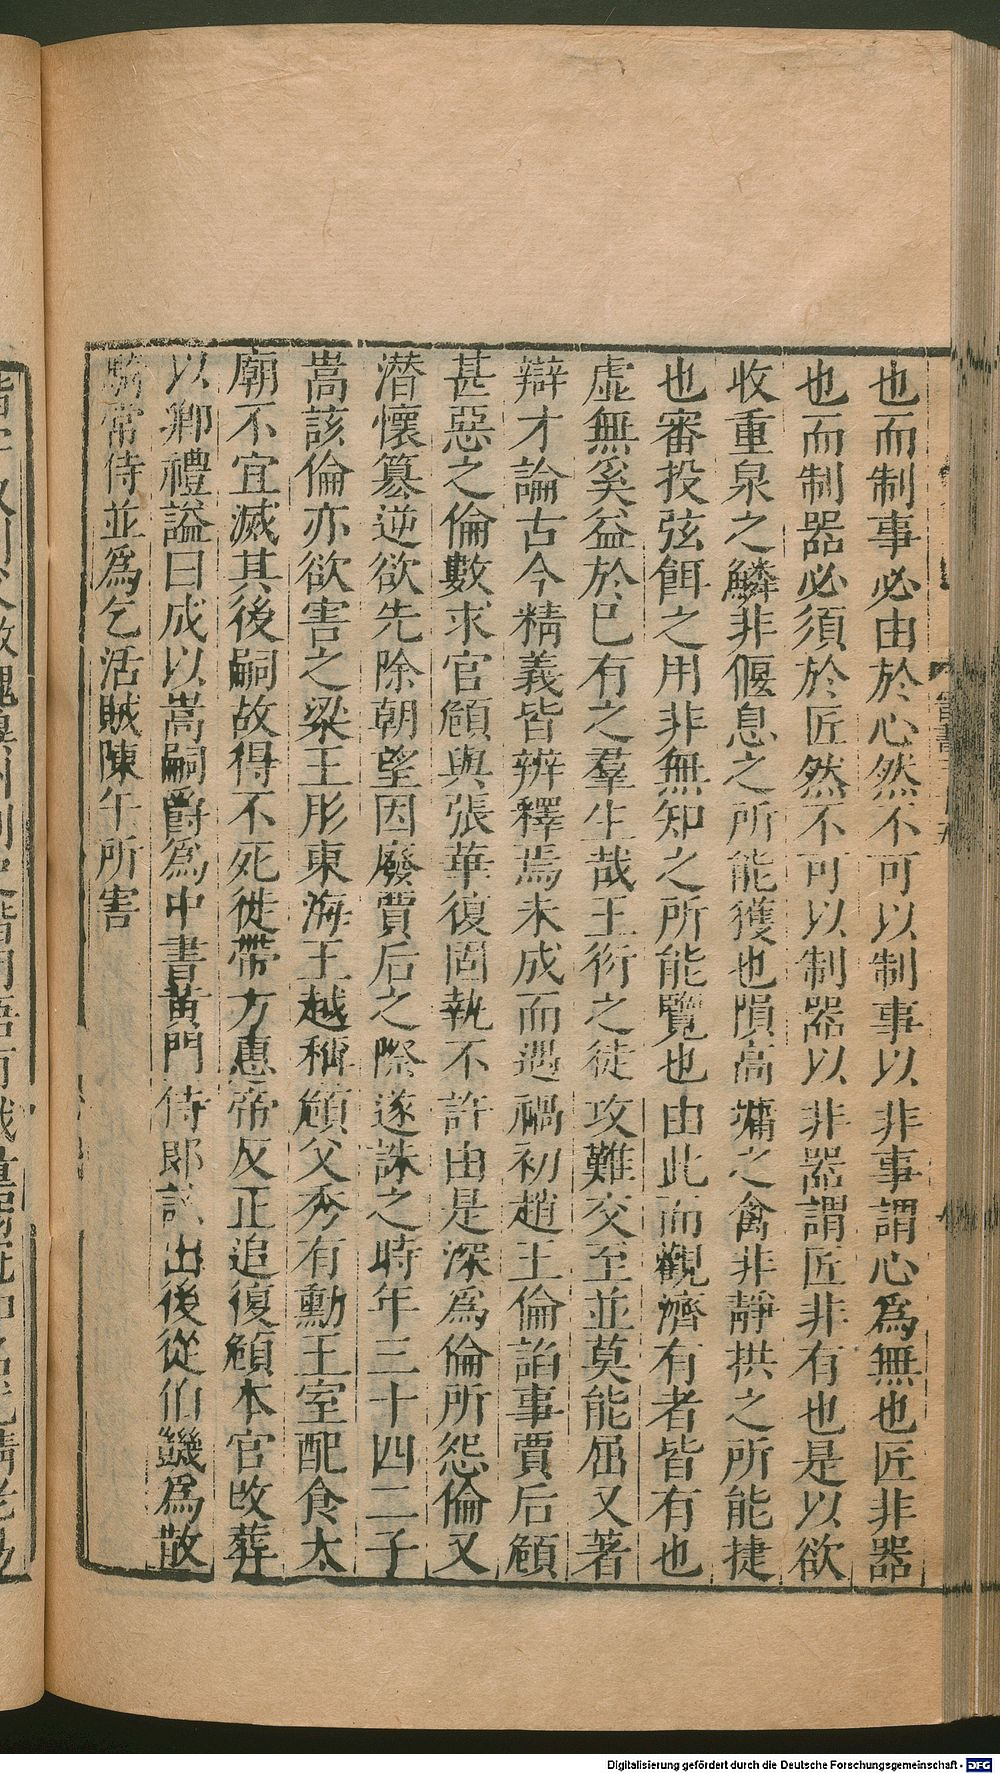 也而制事必由於心然不可以制事以非事謂心爲無也匠非器
也而制器必須於匠然不可以制器以非器謂匠非有也是以欲
收重泉之鱗非偃息之所能獲也隕高墉之禽非靜拱之所能捷
也審投弦餌之用非無知之所能覽也由此而觀濟有者皆有也
虛無奚益於已有之羣生哉王衍之徒攻難交至並莫能屈又著
辯才論古今精義皆辨釋焉未成而遇禍初趙王倫諂事賈后頠
甚惡之倫數求官頠與張華復固執不許由是深爲倫所怨倫又
潛懷簒逆欲先除朝望因廢賈后之際遂誅之時年三十四二子
嵩該倫亦欲害之梁王肜東海王越稱頠父秀有勳王室配食太
廟不宜滅其後嗣故得不死徙帶方惠帝反正追復頠本官改葬
以卿禮謚曰成以嵩嗣爵爲中書黃門侍郎該出後從伯鑣爲散
騎常侍並爲乞活賊陳午所害
Digitalisierung gefördert durch die Deutsche Forschungsgemeinschaft - DFG